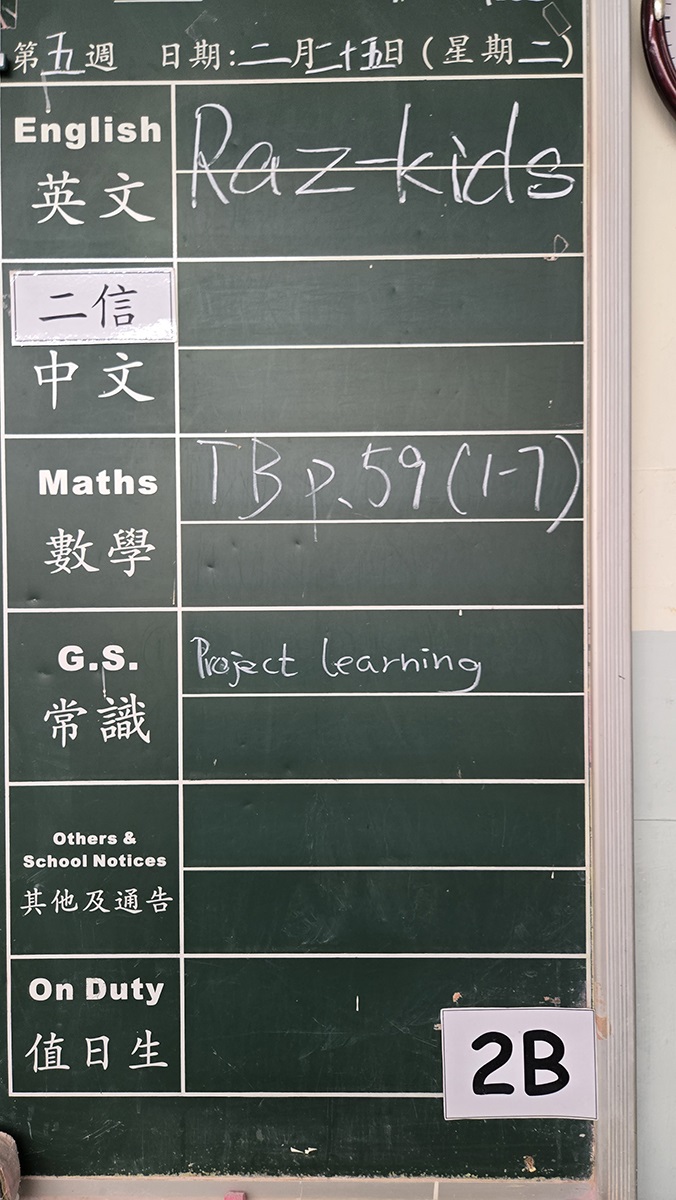 第五週 日期:二月二十五日(星期二)
English
英文
Raz-kids
二信
中文
Maths
數學
TB p.59(1-7)
G.S.
常識
Project learning
Others &
School Notices
其他及通告
On Duty
值日生
2B